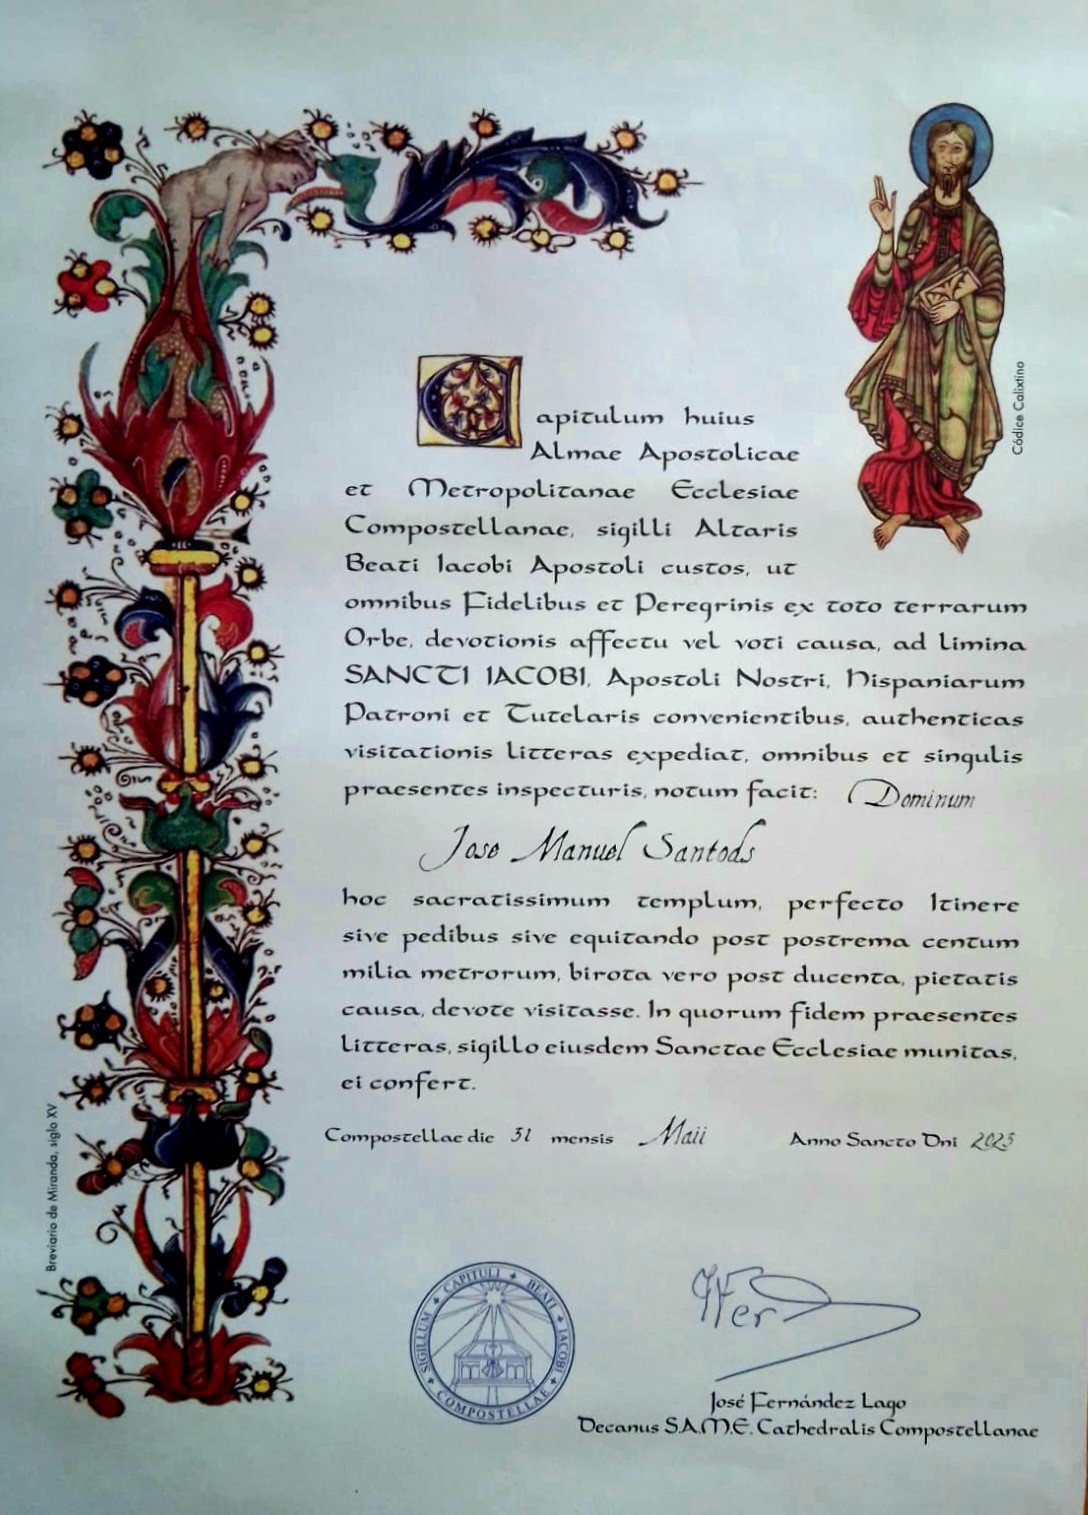 Códice Calixtino
Capitulum huius
Almae Apostolicae
et Metropolitanae Ecclesiae
Compostellanae, sigilli Altaris
Beati Iacobi Apostoli custos, ut
omnibus Fidelibus et Peregrinis ex toto terrarum
Orbe, devotionis affectu vel voti causa, ad limina
SANCTI IACOBI, Apostoli Nostri, Hispaniarum
Patroni et Tutelaris convenientibus, authenticas
visitationis litteras expediat, omnibus et singulis
praesentes inspecturis, notum facit: Dominum
Jose Manuel Santods
hoc sacratissimum templum, perfecto Itinere
sive pedibus sive equitando post postrema centum
milia metrorum, birota vero post ducenta, pietatis
causa, devote visitasse. In quorum fidem praesentes
litteras, sigillo eiusdem Sanctae Ecclesiae munitas,
ei confert.
Compostellae die 31 mensis Maii Anno Sancto Dni 2023
Breviario de Miranda, siglo XV
SIGILLUM CAPITULI BEATI IACOBI COMPOSTELLAE
José Fernández Lago
Decanus S.A.M.E. Cathedralis Compostellanae